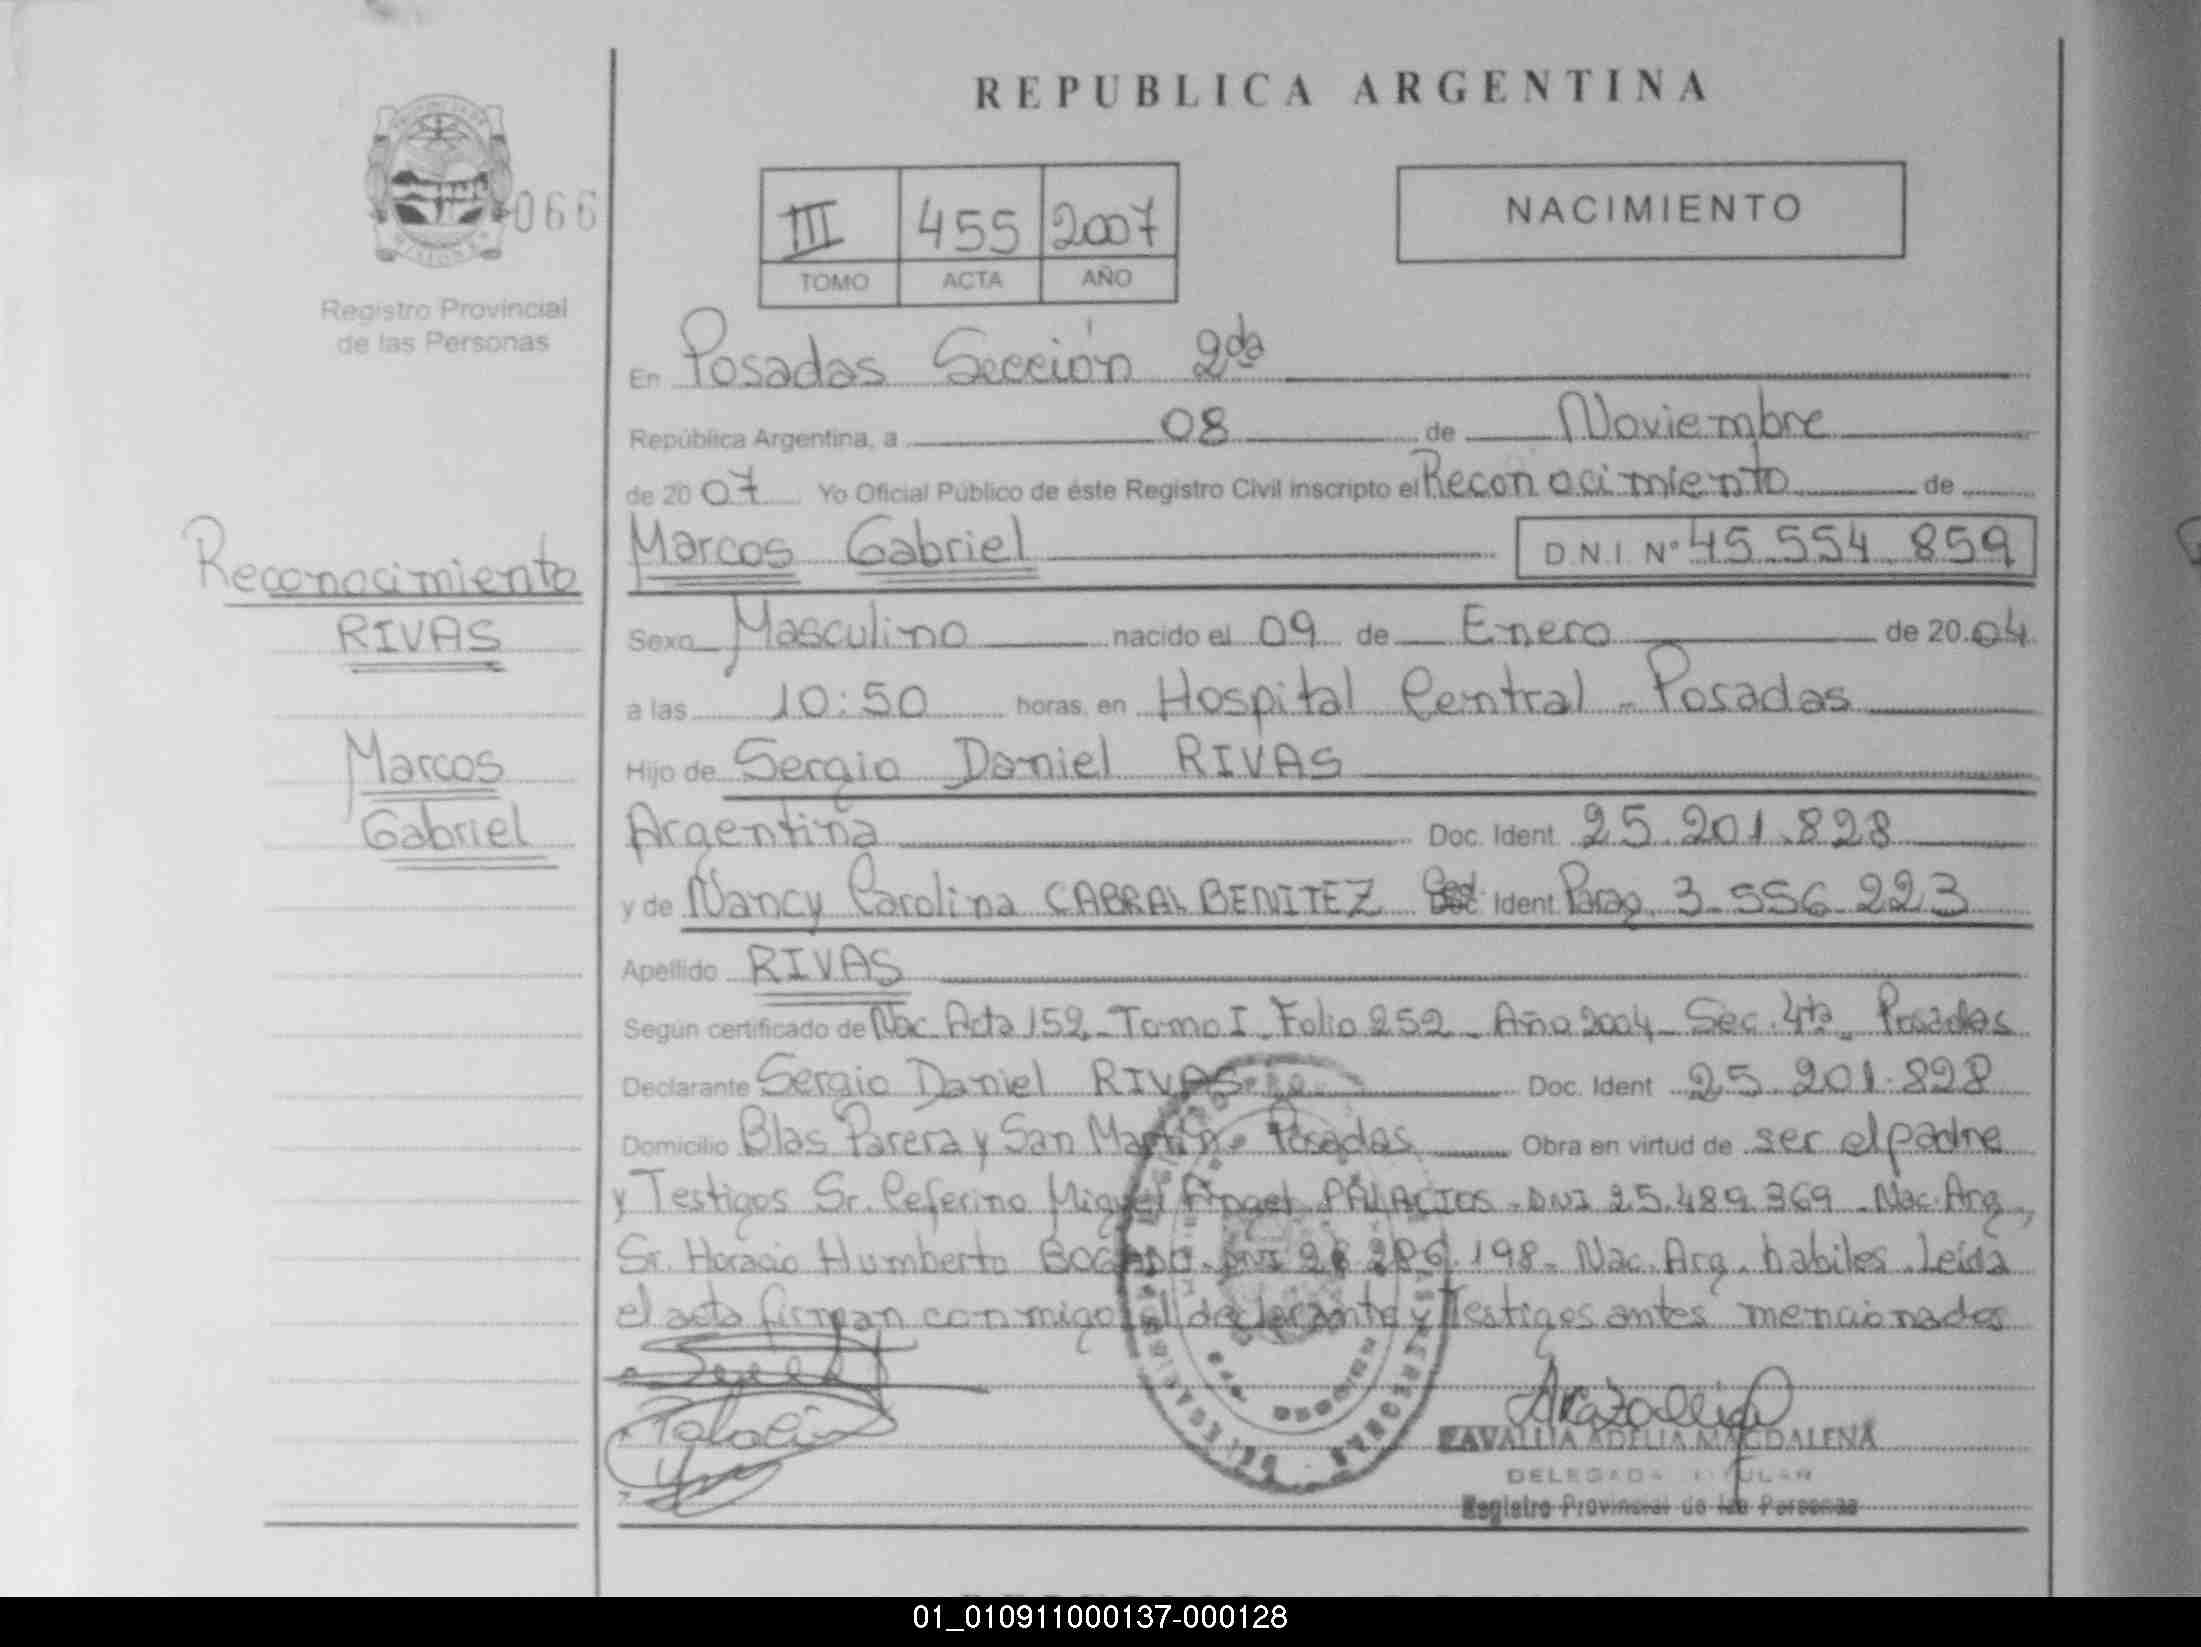 REPUBLICA ARGENTINA
066
III 455 2007
TOMO ACTA AÑO
NACIMIENTO
Registro Provincial
de las Personas
En Posadas Sección 2da
República Argentina, a 08 de Noviembre
de 2007 Yo Oficial Público de éste Registro Civil inscripto el Reconocimiento de
Marcos Gabriel D.N.I. Nº 45.554.859
Reconocimiento
RIVAS
Marcos
Gabriel
Sexo Masculino nacido el 09 de Enero de 2004
a las 10:50 horas, en Hospital Central - Posadas
Hijo de Sergio Daniel RIVAS
Argentina Doc. Ident. 25.201.828
y de Nancy Carolina CABRAL BENITEZ Ced. Ident. Parag. 3.556.223
Apellido RIVAS
Según certificado de Nac. Acta 152 - Tomo I - Folio 252 - Año 2004 - Sec. 4ta - Posadas
Declarante Sergio Daniel RIVAS Doc. Ident. 25.201.828
Domicilio Blas Parera y San Martín - Posadas Obra en virtud de ser el padre
y Testigos Sr. Ceferino Miguel Angel PALACIOS - DNI 25.489.369 - Nac. Arg.,
Sr. Horacio Humberto BOGADO - DNI 198 - Nac. Arg. habiles. Leída
el acta firman conmigo el declarante y Testigos antes mencionados
ZAVALLIA ADELIA MAGDALENA
DELEGADA TITULAR
Registro Provincial de las Personas
01_010911000137-000128